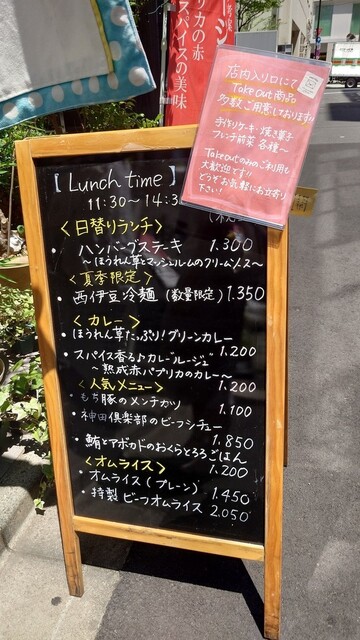 パリカの赤
スパイスの美味
店内入り口にて
Take out 商品
多数ご用意しております!!
手作りケーキ・焼き菓子
フレンチ前菜 各種〜
Take outのみのご利用も
大歓迎です!!
どうぞお気軽にお立寄り
下さい!
【 Lunch time 】
11:30〜14:3
<日替りランチ>
・ハンバーグステーキ 1.300
〜ほうれん草とマッシュルームのクリームソース〜
<夏季限定>
・西伊豆冷麺 (数量限定) 1.350
<カレー>
・ほうれん草たっぷり!グリーンカレー
1.200
・スパイス香る♪カレールージュ
〜熟成赤パプリカのカレー〜
1.200
<人気メニュー>
・もち豚のメンチカツ 1.100
・神田倶楽部のビーフシチュー
1.850
・鮪とアボカドのおくらとろろごはん
1.200
<オムライス>
・オムライス(プレーン) 1.450
・特製ビーフオムライス 2.050